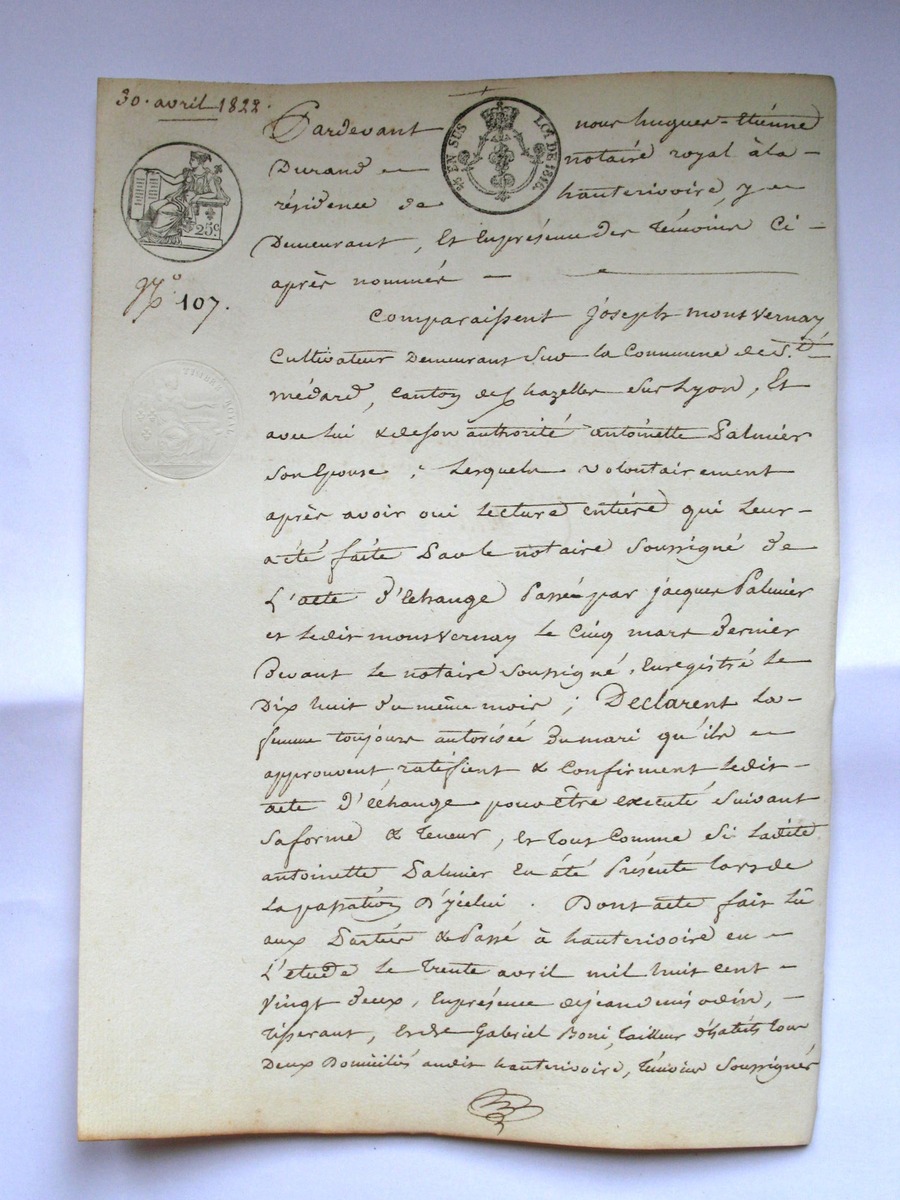 30. avril 1822.
Pardevant nous hugues-étienne
Durand notaire royal à la
résidence de hauterivoire, y
Demeurant, Et Enprésence des Témoins Ci-
après nommés
Comparaissent joseph montvernay
Cultivateur Demeurant sur la Commune de St.
médard, Canton de Chazelles sur Lyon, Et
avec lui & de son authorité antoinette Palmier
son Epouse ; Lesquels volontairement
après avoir oui Lecture entiére qui Leur
a été faite Par le notaire soussigné de
L'acte d'échange Passé par jacques Palmier
et Ledit montvernay Le Cinq mars Dernier
Devant Le notaire soussigné, Enregistré Le
Dix huit du même mois ; Déclarent La
femme toujours autorisée Du mari qu'ils
approuvent, ratifient & Confirment Ledit
acte D'échange pour être executé suivant
sa forme & Teneur, Et Tout Comme si Ladite
antoinette Palmier Eu été Présente Lors de
La passation D'ycelui. Dont acte fait Lû
aux Parties & Passé à hauterivoire en
L'étude Le Trente avril mil huit cent
vingt Deux, Enprésence de jean denis odin,
Tisserant, Et de Gabriel Boni, Tailleur d'habits tous
Deux Domiciliés audit hauterivoire, Témoins soussignés
EN SUS LOI DE 1816.
25c.
No 107.
TIMBRE ROYAL